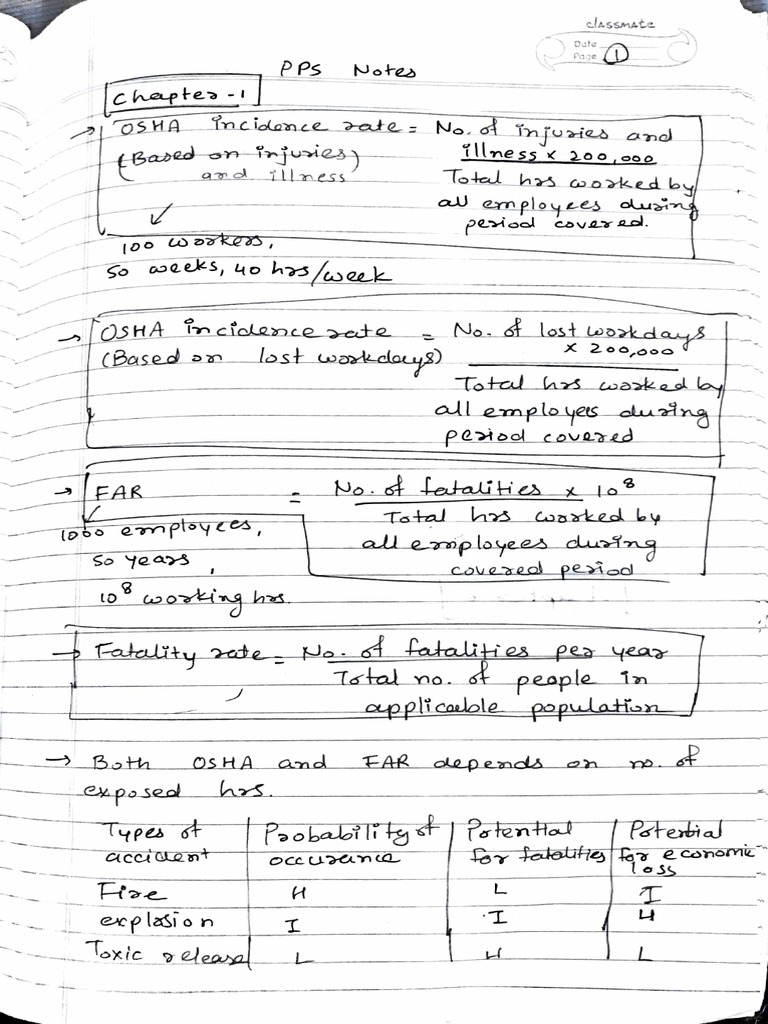 classmate
Date
Page 1
PPS Notes
Chapter-1
→ OSHA incidence rate = No. of injuries and
(Based on injuries) illness x 200,000
and illness Total hrs worked by
all employees during
period covered.
100 workers,
50 weeks, 40 hrs/week
→ OSHA incidence rate = No. of lost workdays
(Based on lost workdays) x 200,000
Total hrs worked by
all employees during
period covered
→ FAR = No. of fatalities x 10⁸
1000 employees, Total hrs worked by
50 years, all employees during
10⁸ working hrs. covered period
→ Fatality rate = No. of fatalities per year
Total no. of people in
applicable population
→ Both OSHA and FAR depends on no. of
exposed hrs.
Types of Probability of Potential Potential
accident occurance for fatalities for economic
loss
Fire H L I
explosion I I H
Toxic release L H L